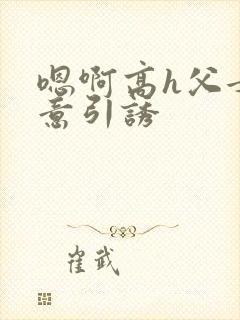 嗯啊高h父女
意引誘
崔武